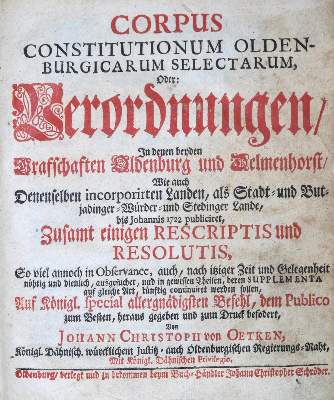 CORPUS
CONSTITUTIONUM OLDEN-
BURGICARUM SELECTARUM,
Oder:
Verordnungen/
In denen beyden
Grafschaften Oldenburg und Delmenhorst/
Wie auch
Denenselben incorporirten Landen, als Stadt- und But-
jadinger-Würder- und Stedinger Lande,
bis Johannis 1722 publiciret,
Zusamt einigen RESCRIPTIS und
RESOLUTIS,
So viel annoch in Observance, auch, nach itziger Zeit und Gelegenheit
nöhtig und dienlich, ausgesuchet, und in gewissen Theilen, deren SUPPLEMENTA
auf gleiche Art, künftig continuiret werden sollen,
Auf Königl. special allergnädigsten Befehl, dem Publico
zum Besten, heraus gegeben und zum Druck befodert,
Von
JOHANN CHRISTOPH VON OETKEN,
Königl. Dähnisch. würcklichem Justitz- auch Oldenburgischen Regierungs-Raht,
Mit Königl. Dähnischen Privilegio.
Oldenburg/ verlegt und zu bekommen beym Buch-Händler Johann Christopher Schröder.